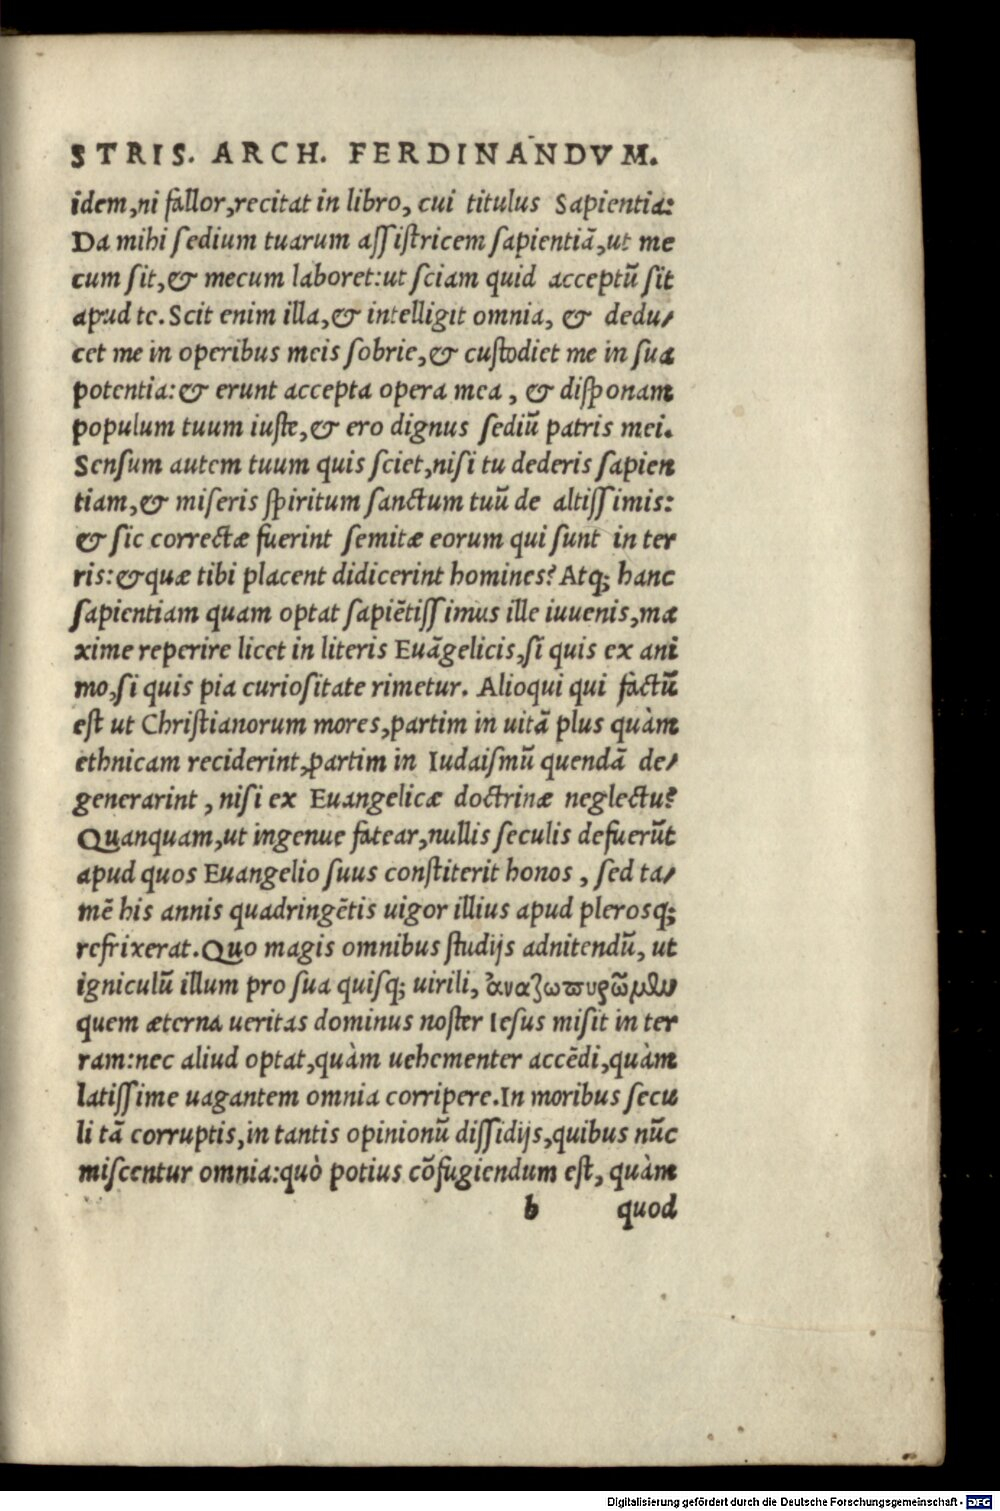 STRIS. ARCH. FERDINANDVM.
idem,ni fallor,recitat in libro, cui titulus Sapientia:
Da mihi ſedium tuarum aſſiſtricem ſapientiã,ut me
cum ſit,& mecum laboret:ut ſciam quid acceptũ ſit
apud te.Scit enim illa,& intelligit omnia, & dedu/
cet me in operibus meis ſobrie,& cuſtodiet me in ſua
potentia:& erunt accepta opera mea , & diſponam
populum tuum iuſte,& ero dignus ſediũ patris mei.
Senſum autem tuum quis ſciet,niſi tu dederis ſapien
tiam,& miſeris ſpiritum ſanctum tuũ de altiſſimis:
& ſic correctæ fuerint ſemitæ eorum qui ſunt in ter
ris:&quæ tibi placent didicerint homines? Atq; hanc
ſapientiam quam optat ſapiẽtiſſimus ille iuuenis,ma
xime reperire licet in literis Euãgelicis,ſi quis ex ani
mo,ſi quis pia curioſitate rimetur. Alioqui qui factũ
eſt ut Chriſtianorum mores,partim in uitã plus quàm
ethnicam reciderint,partim in Iudaiſmũ quendã de/
generarint , niſi ex Euangelicæ doctrinæ neglectu?
Quanquam,ut ingenue fatear,nullis ſeculis defuerũt
apud quos Euangelio ſuus conſtiterit honos , ſed ta/
mẽ his annis quadringẽtis uigor illius apud pleroſq;
refrixerat.Quo magis omnibus ſtudijs adnitendũ, ut
igniculũ illum pro ſua quiſq; uirili, ἀναζωπυρῶμεν
quem æterna ueritas dominus noſter Ieſus miſit in ter
ram:nec aliud optat,quàm uehementer accẽdi,quàm
latiſſime uagantem omnia corripere.In moribus ſecu
li tã corruptis,in tantis opinionũ diſſidijs,quibus nũc
miſcentur omnia:quò potius cõfugiendum eſt, quàm
b quod
Digitalisierung gefördert durch die Deutsche Forschungsgemeinschaft - DFG